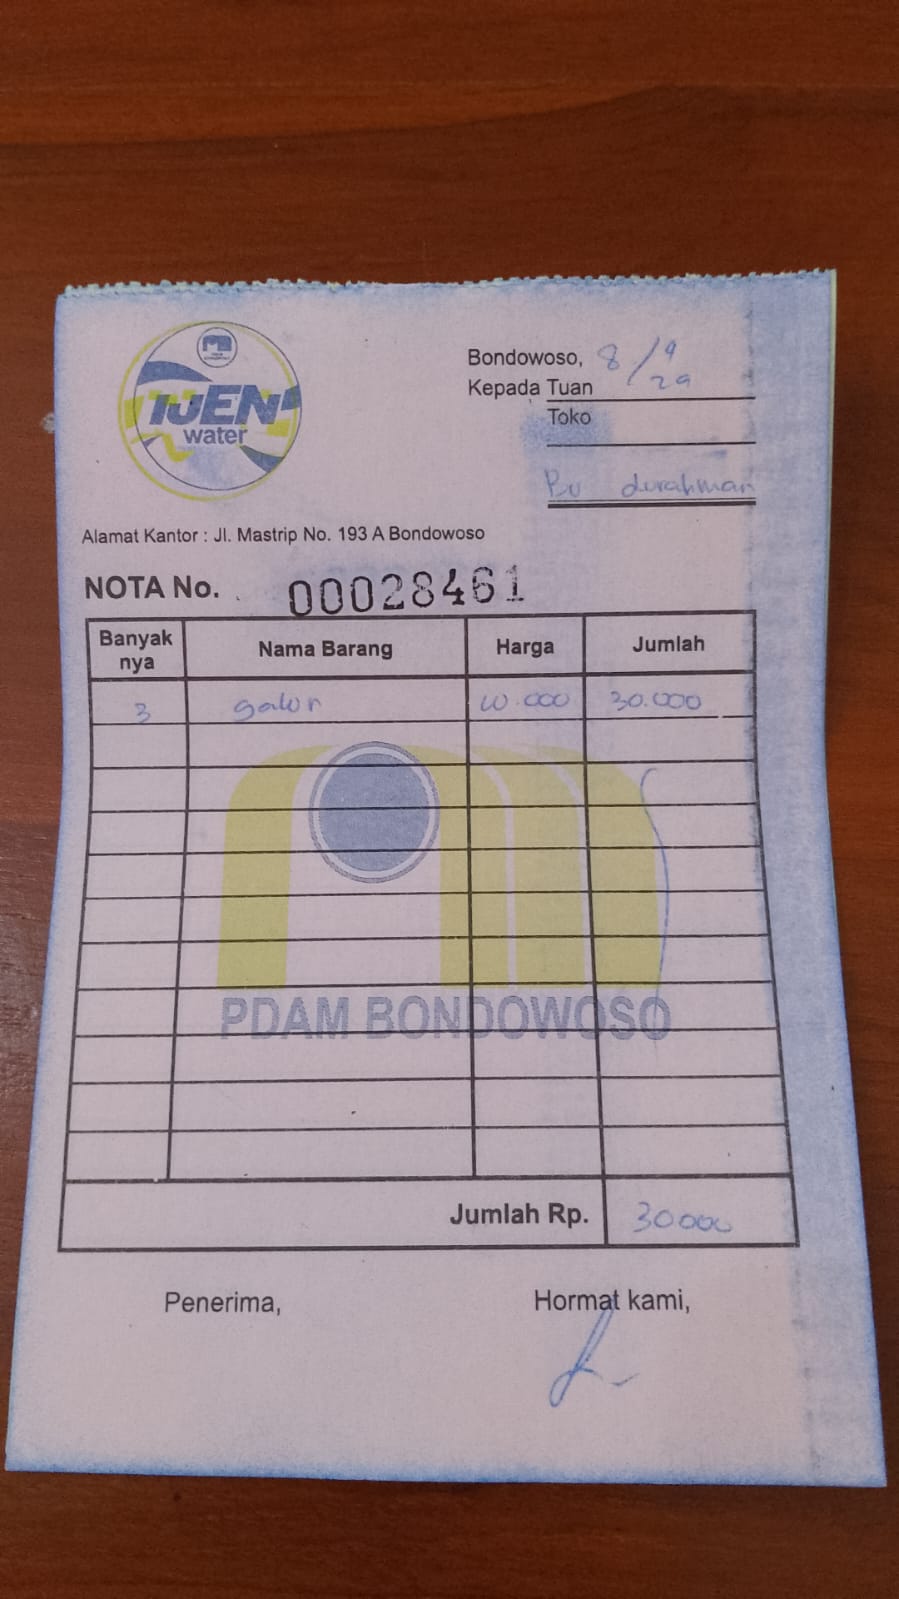 IJEN
water
Bondowoso, 8/9
Kepada Tuan
Toko
Bu durahman
Alamat Kantor : Jl. Mastrip No. 193 A Bondowoso
NOTA No. 00028461
Banyak nya Nama Barang Harga Jumlah
3 galon 10.000 30.000
PDAM BONDOWOSO
Jumlah Rp. 30.000
Penerima, Hormat kami,